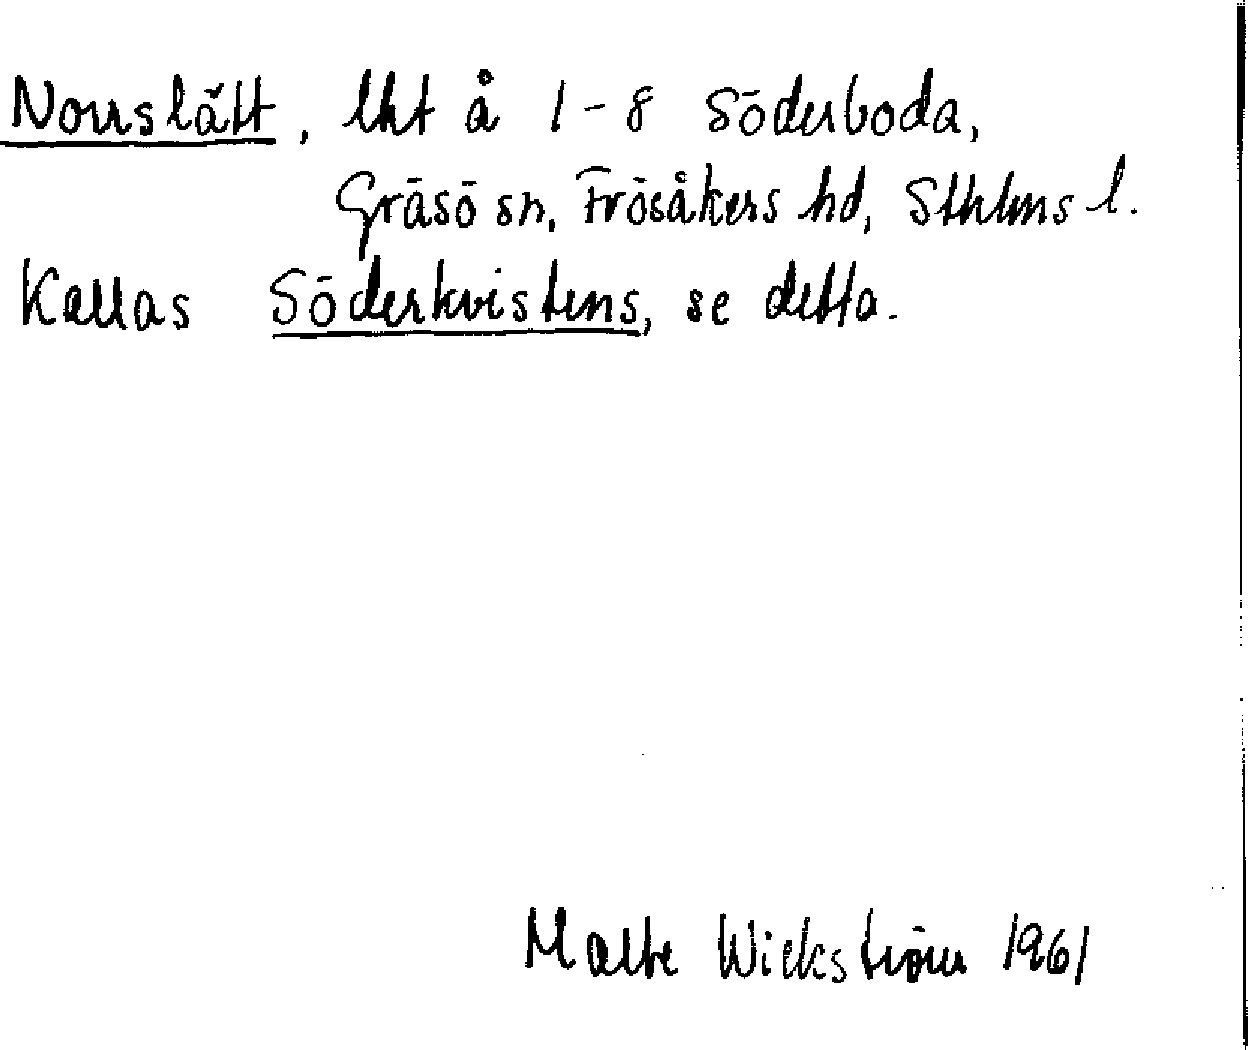 Norrslätt, lht å 1-8 Söderboda,
Gräsö sn, Frösåkers hd, Sthlms l.
Kallas Söderkvistens, se detta.
Malte Wickström 1961